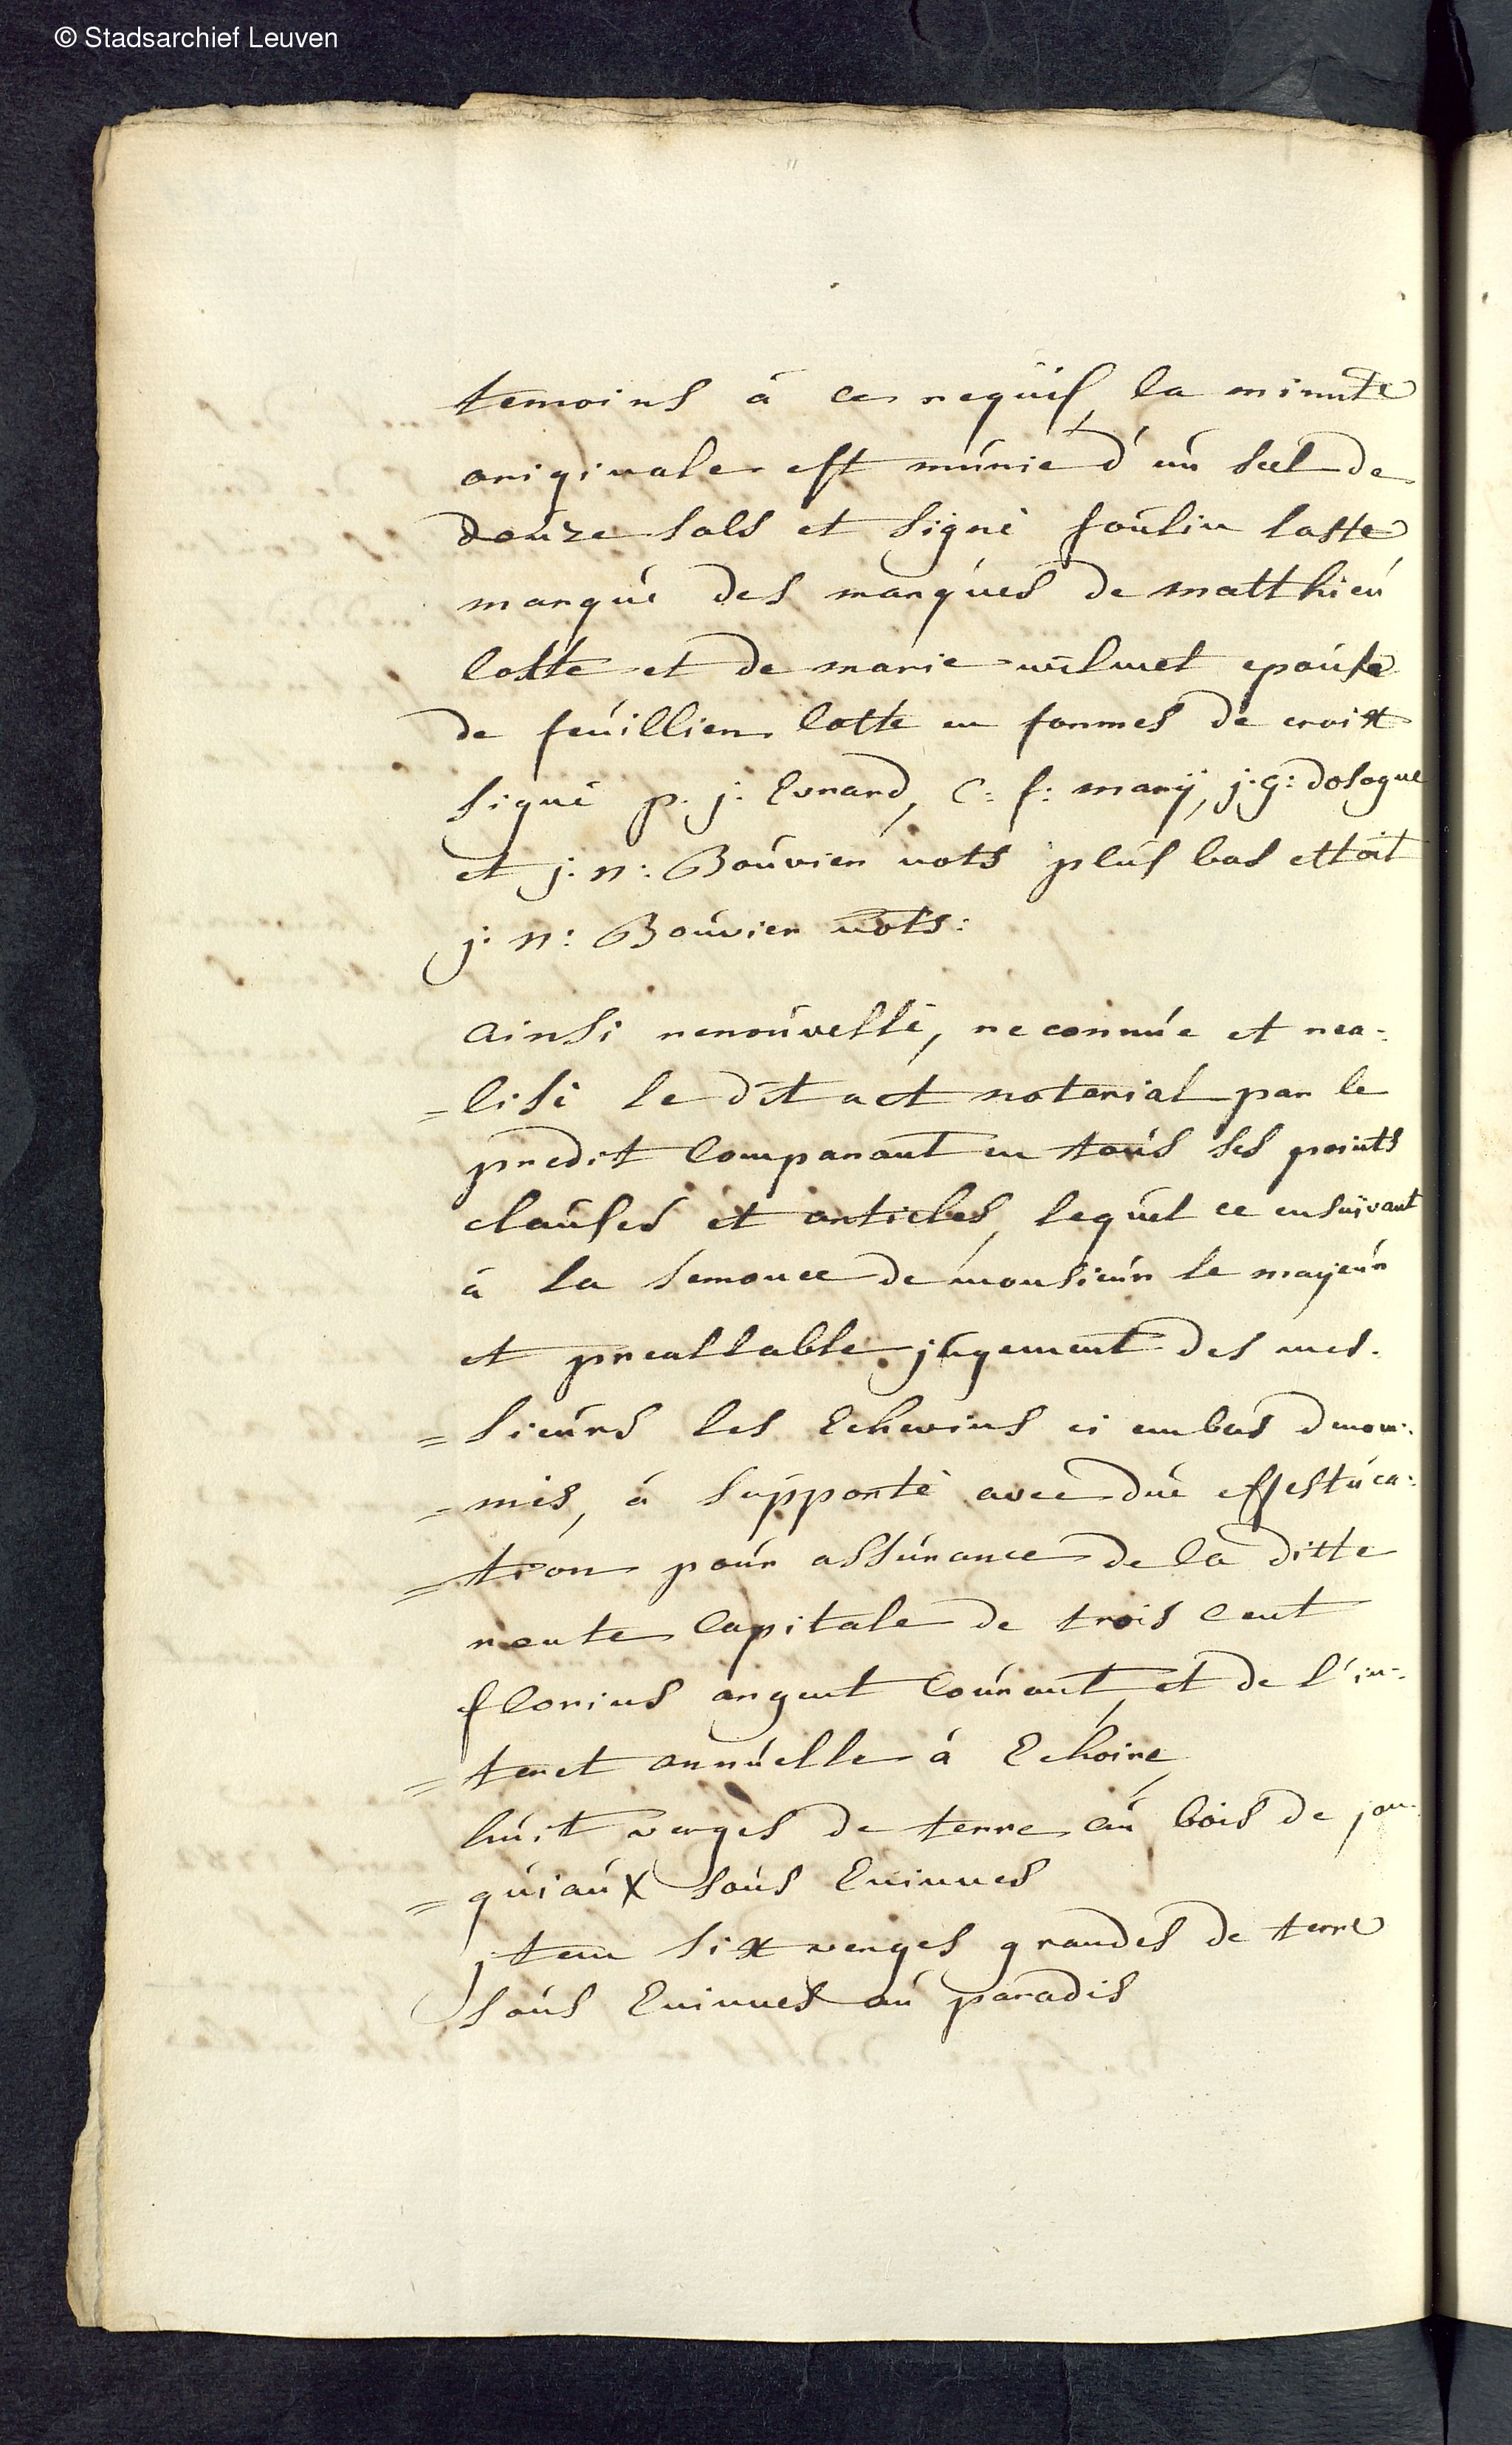 © Stadsarchief Leuven
temoins à ce requis, la minute
originale est múnie d'ún séel de
doúze sols et signé foúlin lotte
marqué des marqúes de matthieú
lotte et de marie wilmet epoúse
de feúillien lotte en formes de croix
signé p. j: Evrard, C: f: marÿ, j: g: dosogne
et j: n: Boúvier nots plús bas ettoit
j: n: Boúvier nots:
ainsi renoúvellé, reconnúe et rea-
=lisé le dit act noterial par le
predit Comparant en toús ses points
claúses et articles, leqúel ce ensúivant
à la semonce de monsieúr le mayeúr
et preallable júgement des mes-
=sieúrs les Echevins ci embas denom-
=més, à súpporté avec dúe effestúca-
=tion poúr assúrance de la ditte
rente Capitale de trois Cent
florins argent Coúrant, et de l'in-
=teret annúelle à Echoire,
húit verges de terre aú bois de jon-
=qúiaúx soús Evinnes
jtem six verges grandes de terre
soús Evinnes aú paradis